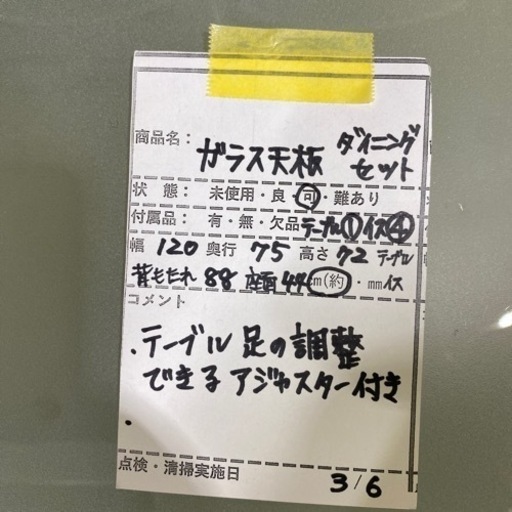 商品名: ガラス天板 ダイニングセット
状 態: 未使用・良・可・難あり
付属品: 有・無・欠品 テーブル① イス④
幅 120 奥行 75 高さ 72 テーブル
背もたれ 88 座面 44 cm(約)・mm イス
コメント
・テーブル足の調整
できるアジャスター付き
・
点検・清掃実施日
3/6